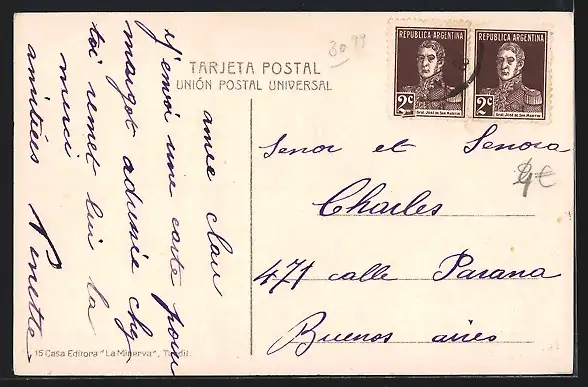 REPUBLICA ARGENTINA
2c
Gral. José de San Martin
REPUBLICA ARGENTINA
2c
Gral. José de San Martin
TARJETA POSTAL
UNIÓN POSTAL UNIVERSAL
amie
J'envoi une carte pour
margot adresse
toi remet lui la
merci
amitiées
Senor et Senora
Charles
471 calle Parana
Buenos aires
15 Casa Editora "La Minerva", Tandil.